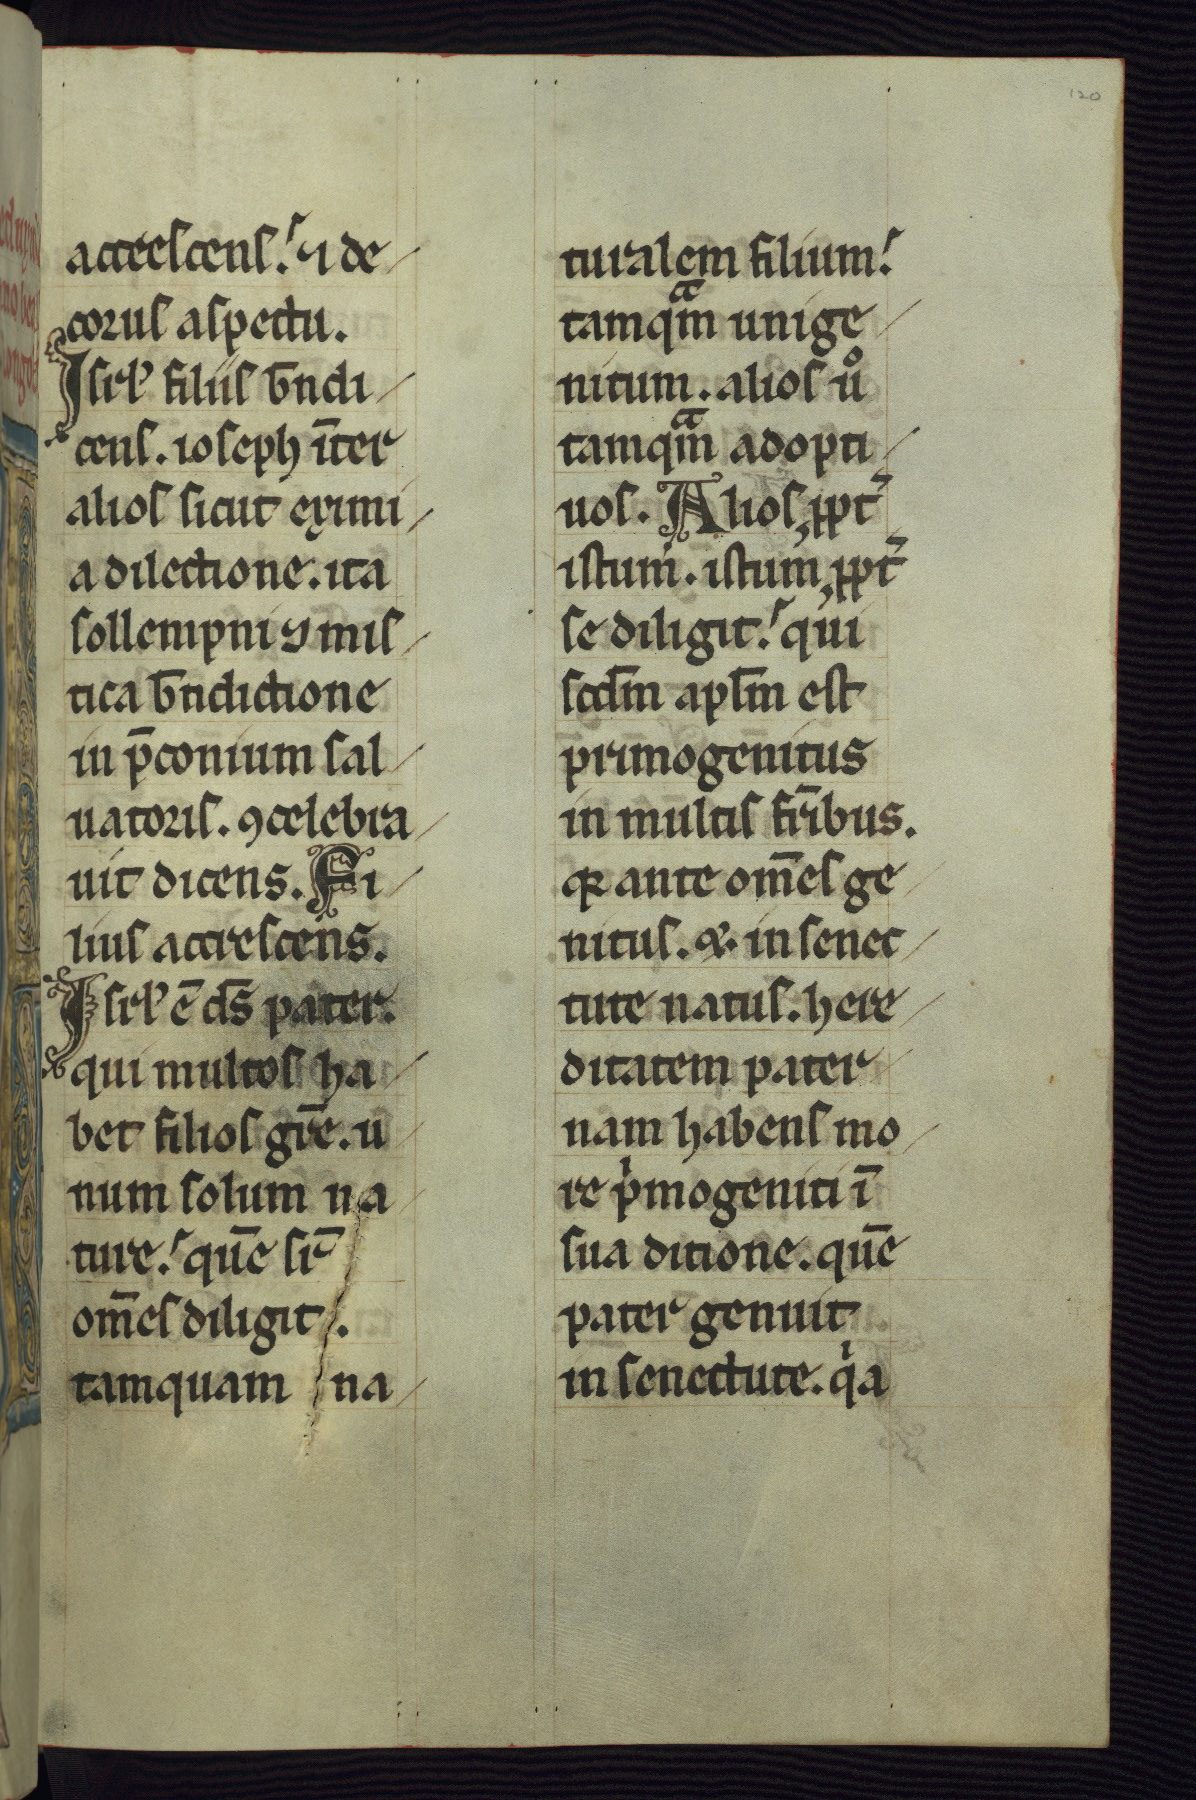 120
accrescens. ⁊ de
corus aspectu.
Isrl' filiis bn̄di
cens. ioseph īter
alios sicut eximi
a dilectione. ita
sollempni ⁊ mis
tica bn̄dictione
in p̄conium sal
uatoris. ꝯcelebra
uit dicens. Fi
lius accrescens.
Isrl' ē ds̄ pater.
qui multos ha
bet filios grē. u
num solum na
ture. quē sr̄
om̄es diligit.
tamquam na
turalem filium.
tamqᵃm unige
nitum. alios uº
tamqᵃm adopti
uos. Alios ꝓpt̄
istum. istum ꝓpt̄
se diligit. qui
scd̄m apl̄m est
primogenitus
in multis fr̄ibus.
qꝛ ante om̄es ge
nitus. ⁊ in senec
tute natus. here
ditatem pater
nam habens mo
re pⁱmogeniti ī
sua ditione. quē
pater genuit
in senectute. qⁱa